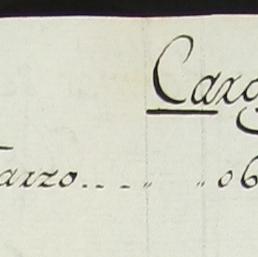 Carg
arzo . . . „ „ 06